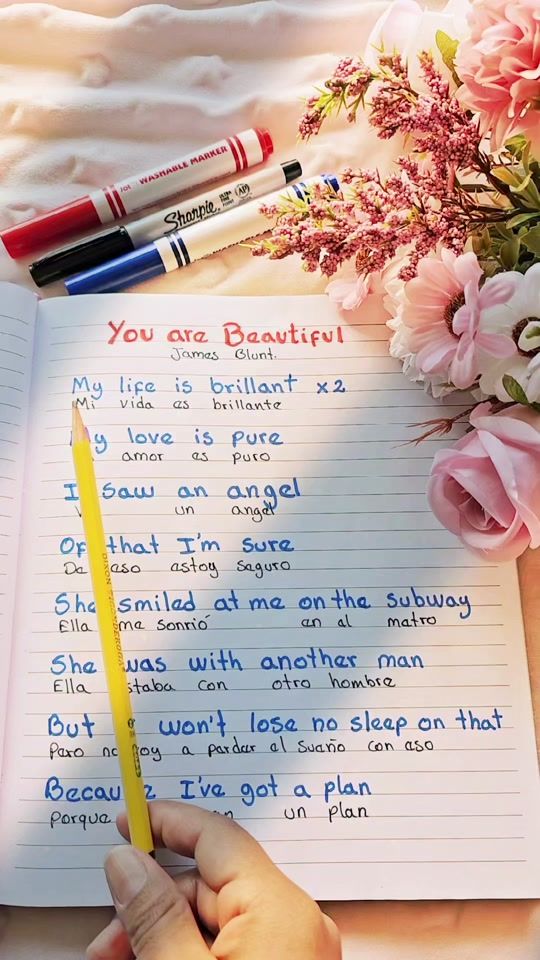 WASHABLE MARKER
Sharpie
You are Beautiful
James Blunt.
My life is brillant x2
Mi vida es brillante
My love is pure
amor es puro
I saw an angel
un angel
Of that I'm sure
De eso estoy seguro
She smiled at me on the subway
Ella me sonrió en el metro
She was with another man
Ella estaba con otro hombre
But won't lose no sleep on that
Pero no voy a perder el sueño con eso
Because I've got a plan
Porque un plan